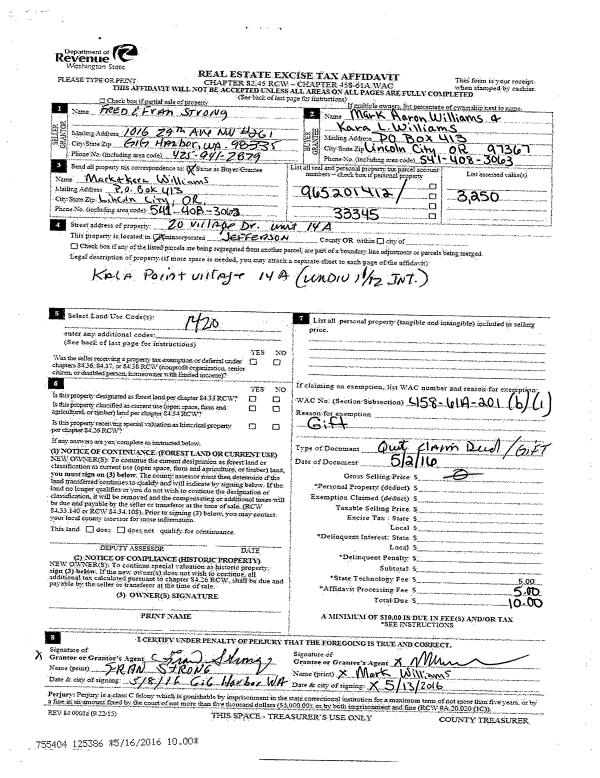 Department of
Revenue
Washington State
REAL ESTATE EXCISE TAX AFFIDAVIT
PLEASE TYPE OR PRINT
CHAPTER 82.45 RCW – CHAPTER 458-61A WAC
This form is your receipt
when stamped by cashier.
THIS AFFIDAVIT WILL NOT BE ACCEPTED UNLESS ALL AREAS ON ALL PAGES ARE FULLY COMPLETED
(See back of last page for instructions)
Check box if partial sale of property
If multiple owners, list percentage of ownership next to name.
1
Name FRED & FRAN STRONG
SELLER
GRANTOR
Mailing Address 1016 29th AVE NW #261
City/State/Zip GIG HARBOR, WA. 98335
Phone No. (including area code) 425-941-2879
2
Name Mark Aaron Williams &
Kara L. Williams
BUYER
GRANTEE
Mailing Address PO BOX 413
City/State/Zip Lincoln City, OR 97367
Phone No. (including area code) 541-408-3063
3
Send all property tax correspondence to: Same as Buyer/Grantee
Name Mark & Kara Williams
Mailing Address P.O. BOX 413
City/State/Zip Lincoln City, OR.
Phone No. (including area code) 541-408-3063
List all real and personal property tax parcel account
numbers – check box if personal property
965201412/
33345
List assessed value(s)
3,250
4
Street address of property: 20 Village Dr. unit 14A
This property is located in unincorporated JEFFERSON County OR within city of
Check box if any of the listed parcels are being segregated from another parcel, are part of a boundary line adjustment or parcels being merged.
Legal description of property (if more space is needed, you may attach a separate sheet to each page of the affidavit)
Kala Point village 14A (UNDIV 1/12 INT.)
5
Select Land Use Code(s):
1420
enter any additional codes:
(See back of last page for instructions)
YES NO
Was the seller receiving a property tax exemption or deferral under
chapters 84.36, 84.37, or 84.38 RCW (nonprofit organization, senior
citizen, or disabled person, homeowner with limited income)?
6
YES NO
Is this property designated as forest land per chapter 84.33 RCW?
Is this property classified as current use (open space, farm and
agricultural, or timber) land per chapter 84.34 RCW?
Is this property receiving special valuation as historical property
per chapter 84.26 RCW?
If any answers are yes, complete as instructed below.
(1) NOTICE OF CONTINUANCE (FOREST LAND OR CURRENT USE)
NEW OWNER(S): To continue the current designation as forest land or
classification as current use (open space, farm and agriculture, or timber) land,
you must sign on (3) below. The county assessor must then determine if the
land transferred continues to qualify and will indicate by signing below. If the
land no longer qualifies or you do not wish to continue the designation or
classification, it will be removed and the compensating or additional taxes will
be due and payable by the seller or transferor at the time of sale. (RCW
84.33.140 or RCW 84.34.108). Prior to signing (3) below, you may contact
your local county assessor for more information.
This land does does not qualify for continuance.
DEPUTY ASSESSOR DATE
(2) NOTICE OF COMPLIANCE (HISTORIC PROPERTY)
NEW OWNER(S): To continue special valuation as historic property,
sign (3) below. If the new owner(s) does not wish to continue, all
additional tax calculated pursuant to chapter 84.26 RCW, shall be due and
payable by the seller or transferor at the time of sale.
(3) OWNER(S) SIGNATURE
PRINT NAME
7
List all personal property (tangible and intangible) included in selling
price.
If claiming an exemption, list WAC number and reason for exemption:
WAC No. (Section/Subsection) 458-61A-201 (b)(1)
Reason for exemption
Gift
Type of Document Quit Claim Deed/GIFT
Date of Document 5/2/16
Gross Selling Price $ 0
*Personal Property (deduct) $
Exemption Claimed (deduct) $
Taxable Selling Price $
Excise Tax : State $
Local $
*Delinquent Interest: State $
Local $
*Delinquent Penalty $
Subtotal $
*State Technology Fee $ 5.00
*Affidavit Processing Fee $ 5.00
Total Due $ 10.00
A MINIMUM OF $10.00 IS DUE IN FEE(S) AND/OR TAX
*SEE INSTRUCTIONS
8
I CERTIFY UNDER PENALTY OF PERJURY THAT THE FOREGOING IS TRUE AND CORRECT.
Signature of
Grantor or Grantor's Agent Fran Strong
Name (print) FRAN STRONG
Date & city of signing: 5/8/16 Gig Harbor WA
Signature of
Grantee or Grantee's Agent X
Name (print) X Mark Williams
Date & city of signing: X 5/13/2016
Perjury: Perjury is a class C felony which is punishable by imprisonment in the state correctional institution for a maximum term of not more than five years, or by
a fine in an amount fixed by the court of not more than five thousand dollars ($5,000.00), or by both imprisonment and fine (RCW 9A.20.020 (1C)).
REV 84 0001a (9/22/15)
THIS SPACE - TREASURER'S USE ONLY
COUNTY TREASURER
755404 125386 *5/16/2016 10.00*